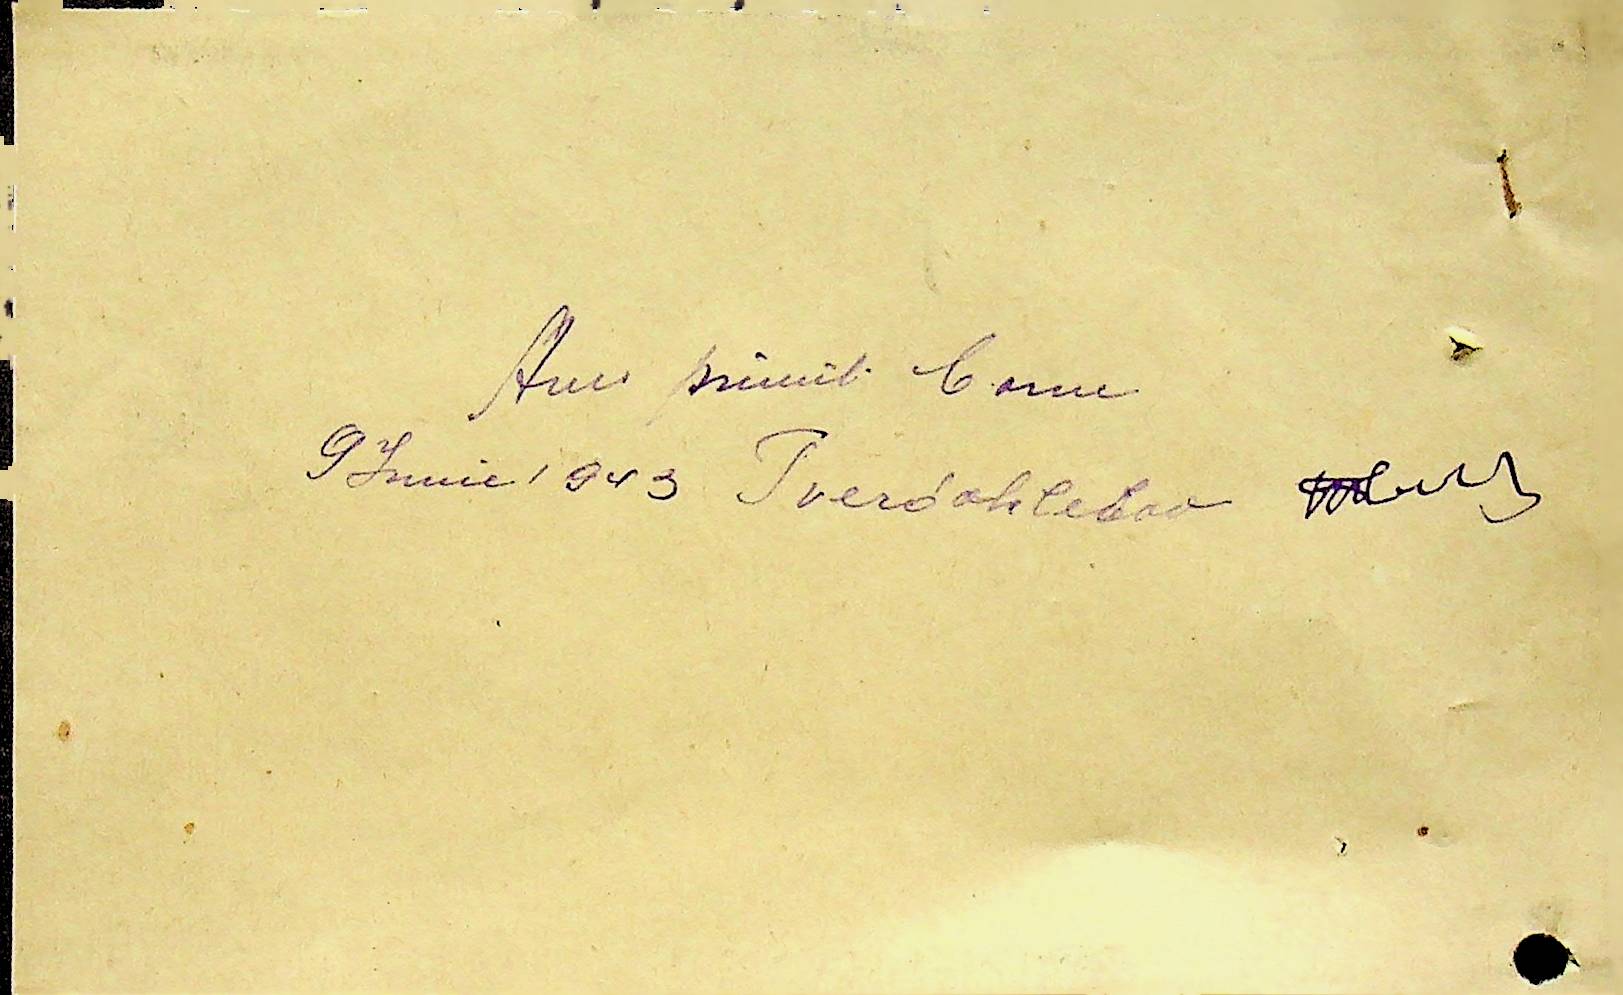 Am primit Carne
9 Iunie 1943 Tverdohlebov